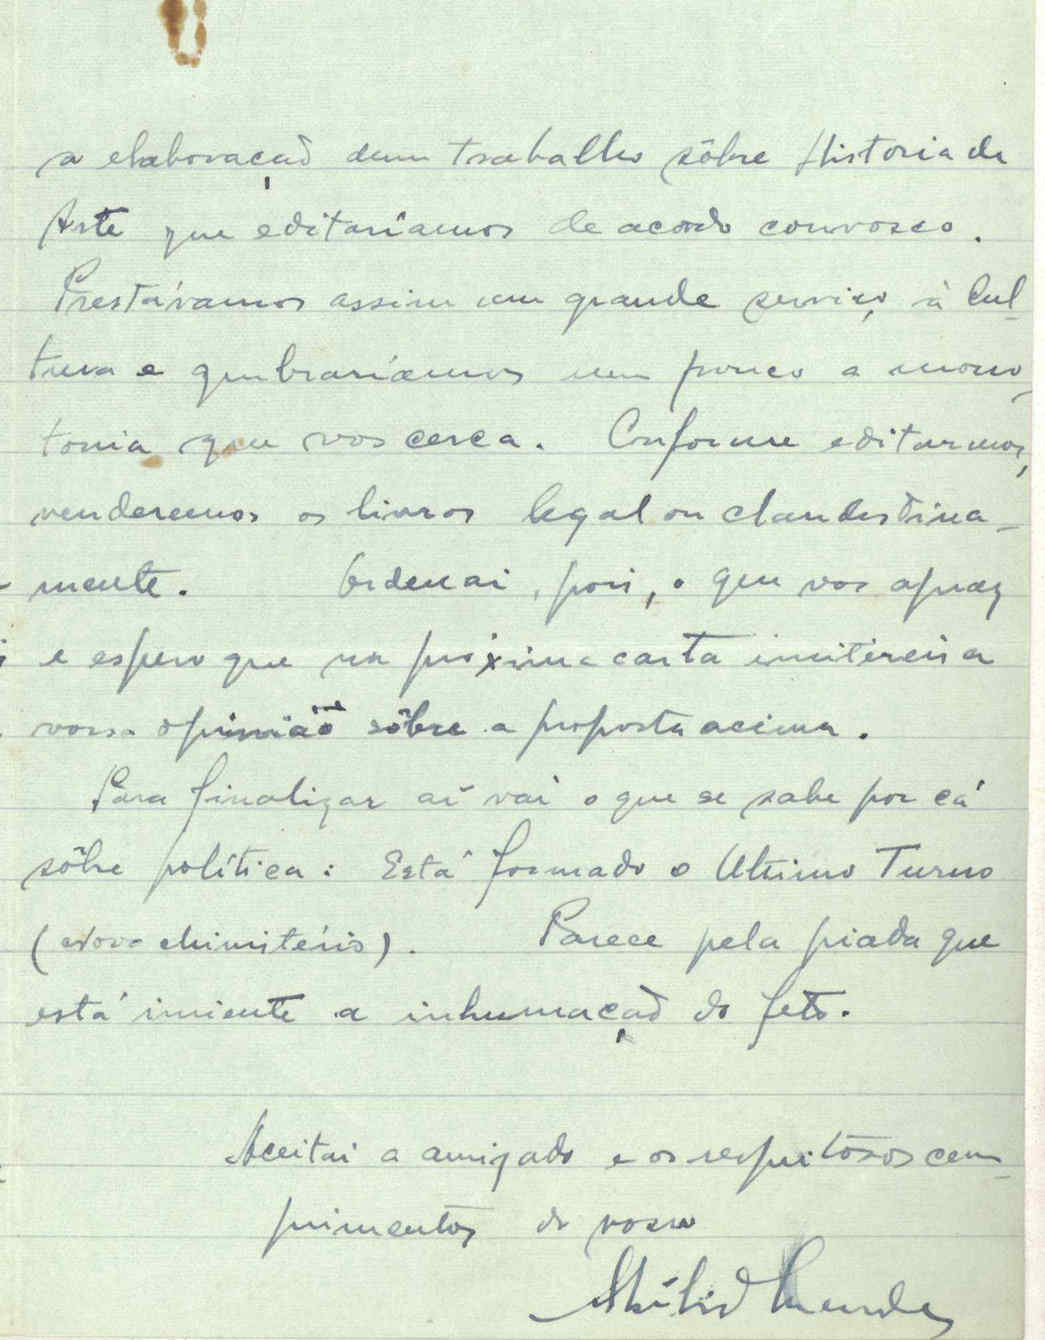 a elaboração dum trabalho sôbre Historia da
Arte que editaríamos de acordo convosco.
Prestávamos assim um grande serviço à Cul-
tura e quebraríamos um pouco a mono-
tonia que vos cerca. Conforme editarmos,
venderemos os livros legal ou clandestina-
mente. Ordenai, pois, o que vos apraz
e espero que na próxima carta emitireis a
vossa opinião sôbre a proposta acima.
Para finalizar aí vai o que se sabe por cá
sôbre política: Está formado o Ultimo Turno
(novo ). Parece pela piada que
está iminente a inhumação do feto.
Aceitai a amizade e os respeitosos cum-
primentos do vosso
Mendes